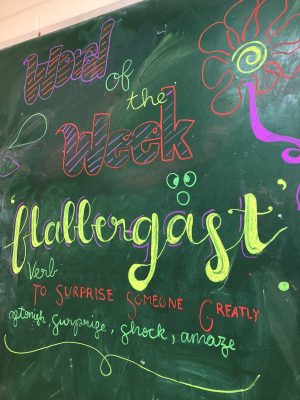 Word
of
the
Week
'flabbergast'
Verb
TO SURPRISE SOMEONE GREATLY
astonish, surprise, shock, amaze